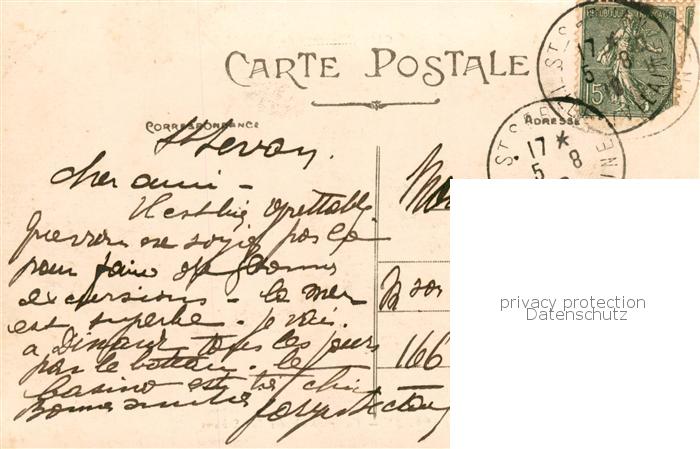 CARTE POSTALE
CORRESPONDANCE
ADRESSE
RÉPUBLIQUE FRANÇAISE
15
17 *
5 8
ST SERVAN
17 *
5 8
St Servan.
Cher ami -
Il est bien regrettable
que vous ne soyez pas là
pour faire de bonnes
excursions - la mer
est superbe. Je vais
a Dinard tous les jours
par le bateau. le
Casino est très chic
Bonnes amitiés
166
privacy protection
Datenschutz